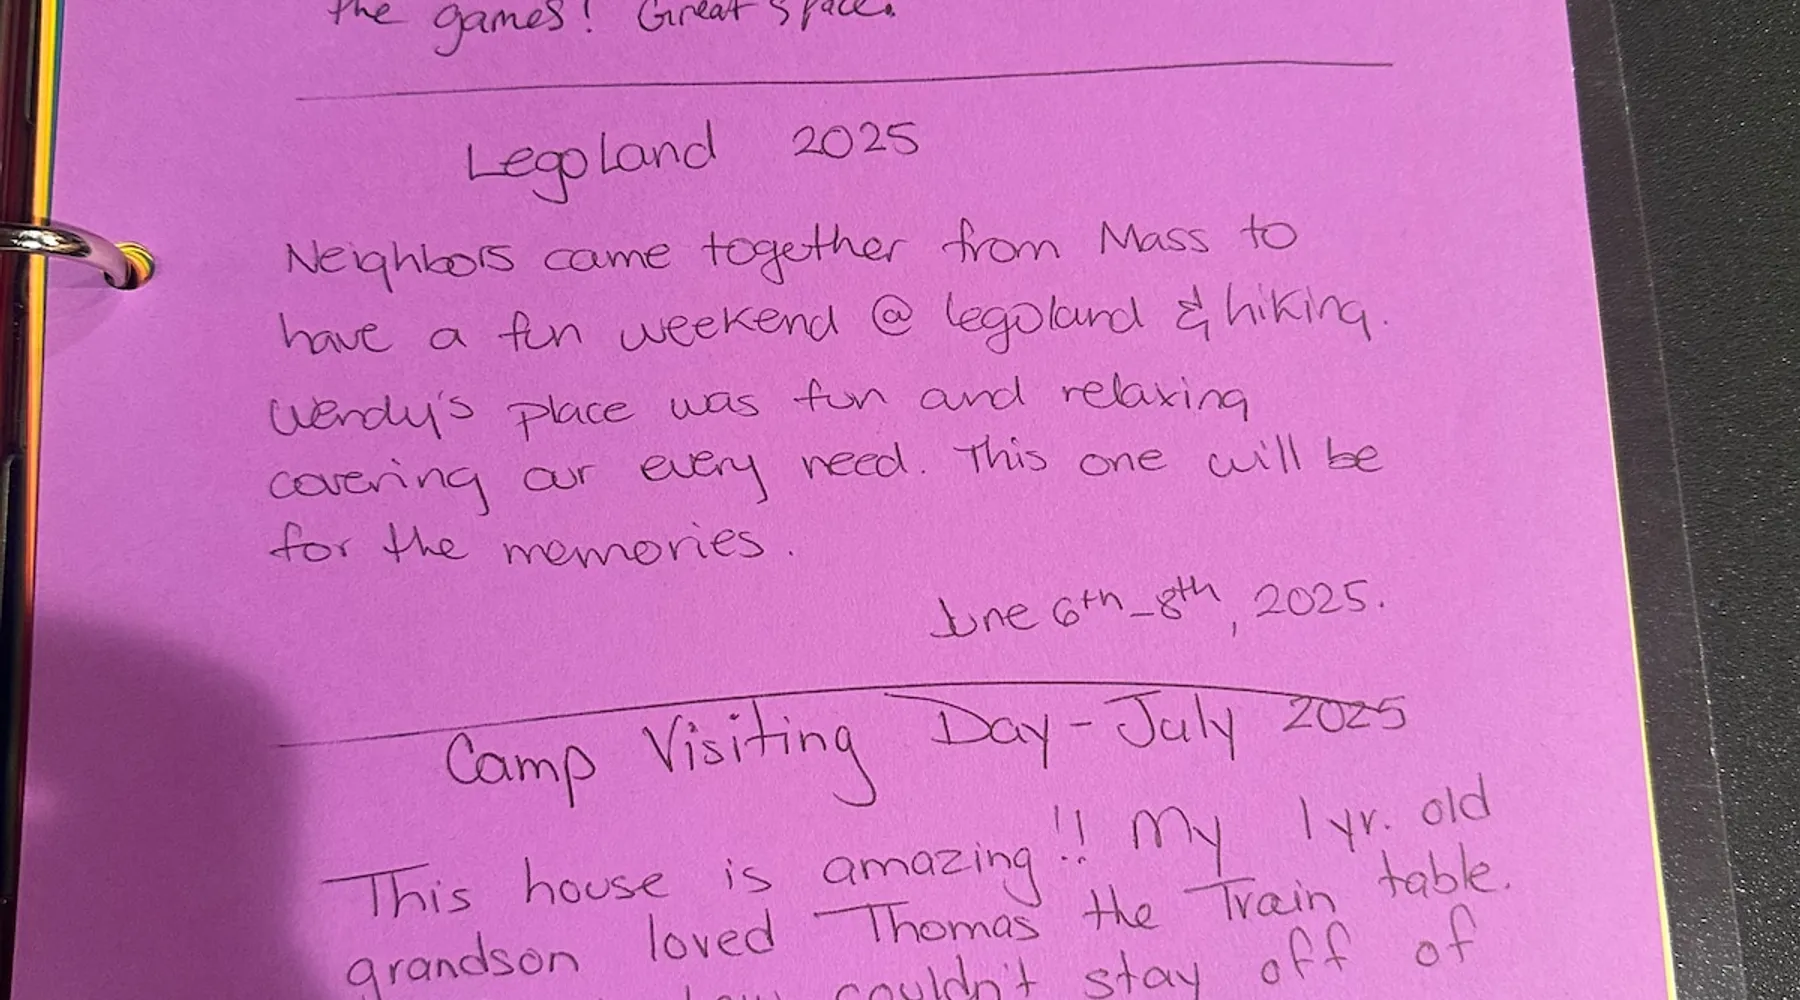 the games! Great space.
Legoland 2025
Neighbors came together from Mass to
have a fun weekend @ legoland & hiking.
Wendy's place was fun and relaxing
covering our every need. This one will be
for the memories.
June 6th-8th, 2025.
Camp Visiting Day - July 2025
This house is amazing!! My 1 yr. old
grandson loved Thomas the Train table.
couldn't stay off of